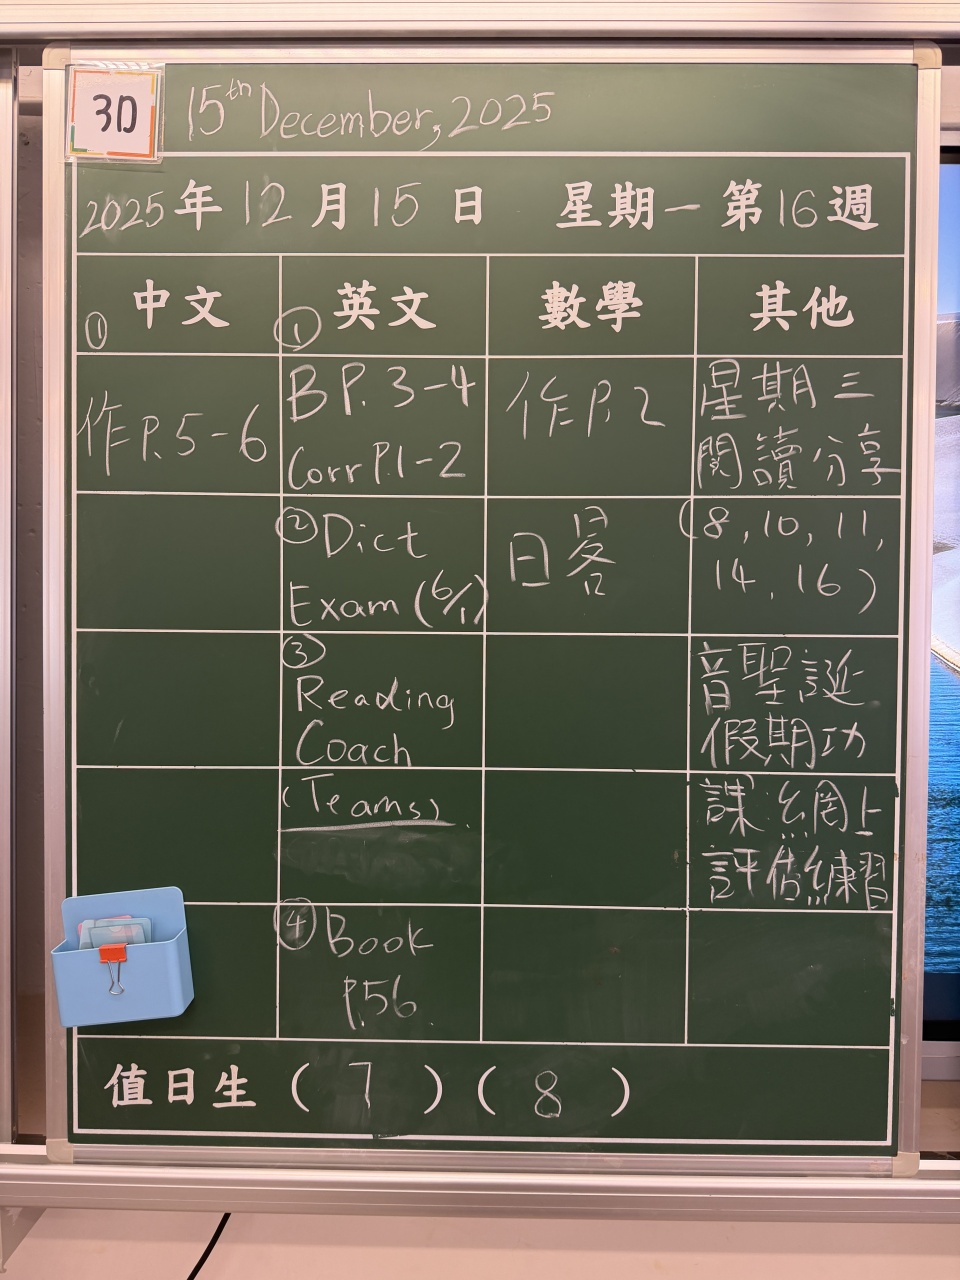 3D
15th December, 2025
2025年12月15日 星期一 第16週
中文
①
作P.5-6
英文
①
B P.3-4
Corr P.1-2
②Dict
Exam (6/1)
③
Reading
Coach
(Teams).
④Book
P.56.
數學
作P.2
日
其他
星期三
閱讀分享
(8, 10, 11,
14, 16)
音聖誕
假期功
課:網上
評估練習
值日生 (7) (8)